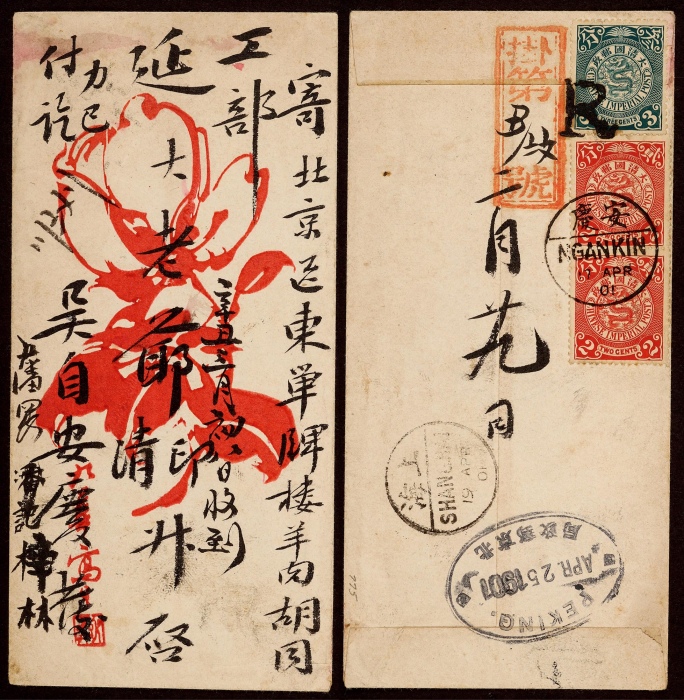 寄北京正東單牌楼羊肉胡同
工部
延大老爺印清升啓
辛丑三月初八日收到
力已
付訖
吳自安慶
掛第號
二月廿九日
大清國郵政
CHINESE IMPERIAL POST
3 THREE CENTS 3
R
大清國郵政
CHINESE IMPERIAL POST
2 TWO CENTS 2
安慶
NGANKIN
17 APR
01
上海
SHANGHAI
19 APR
01
北京郵政局
APR 25 1901
PEKING.